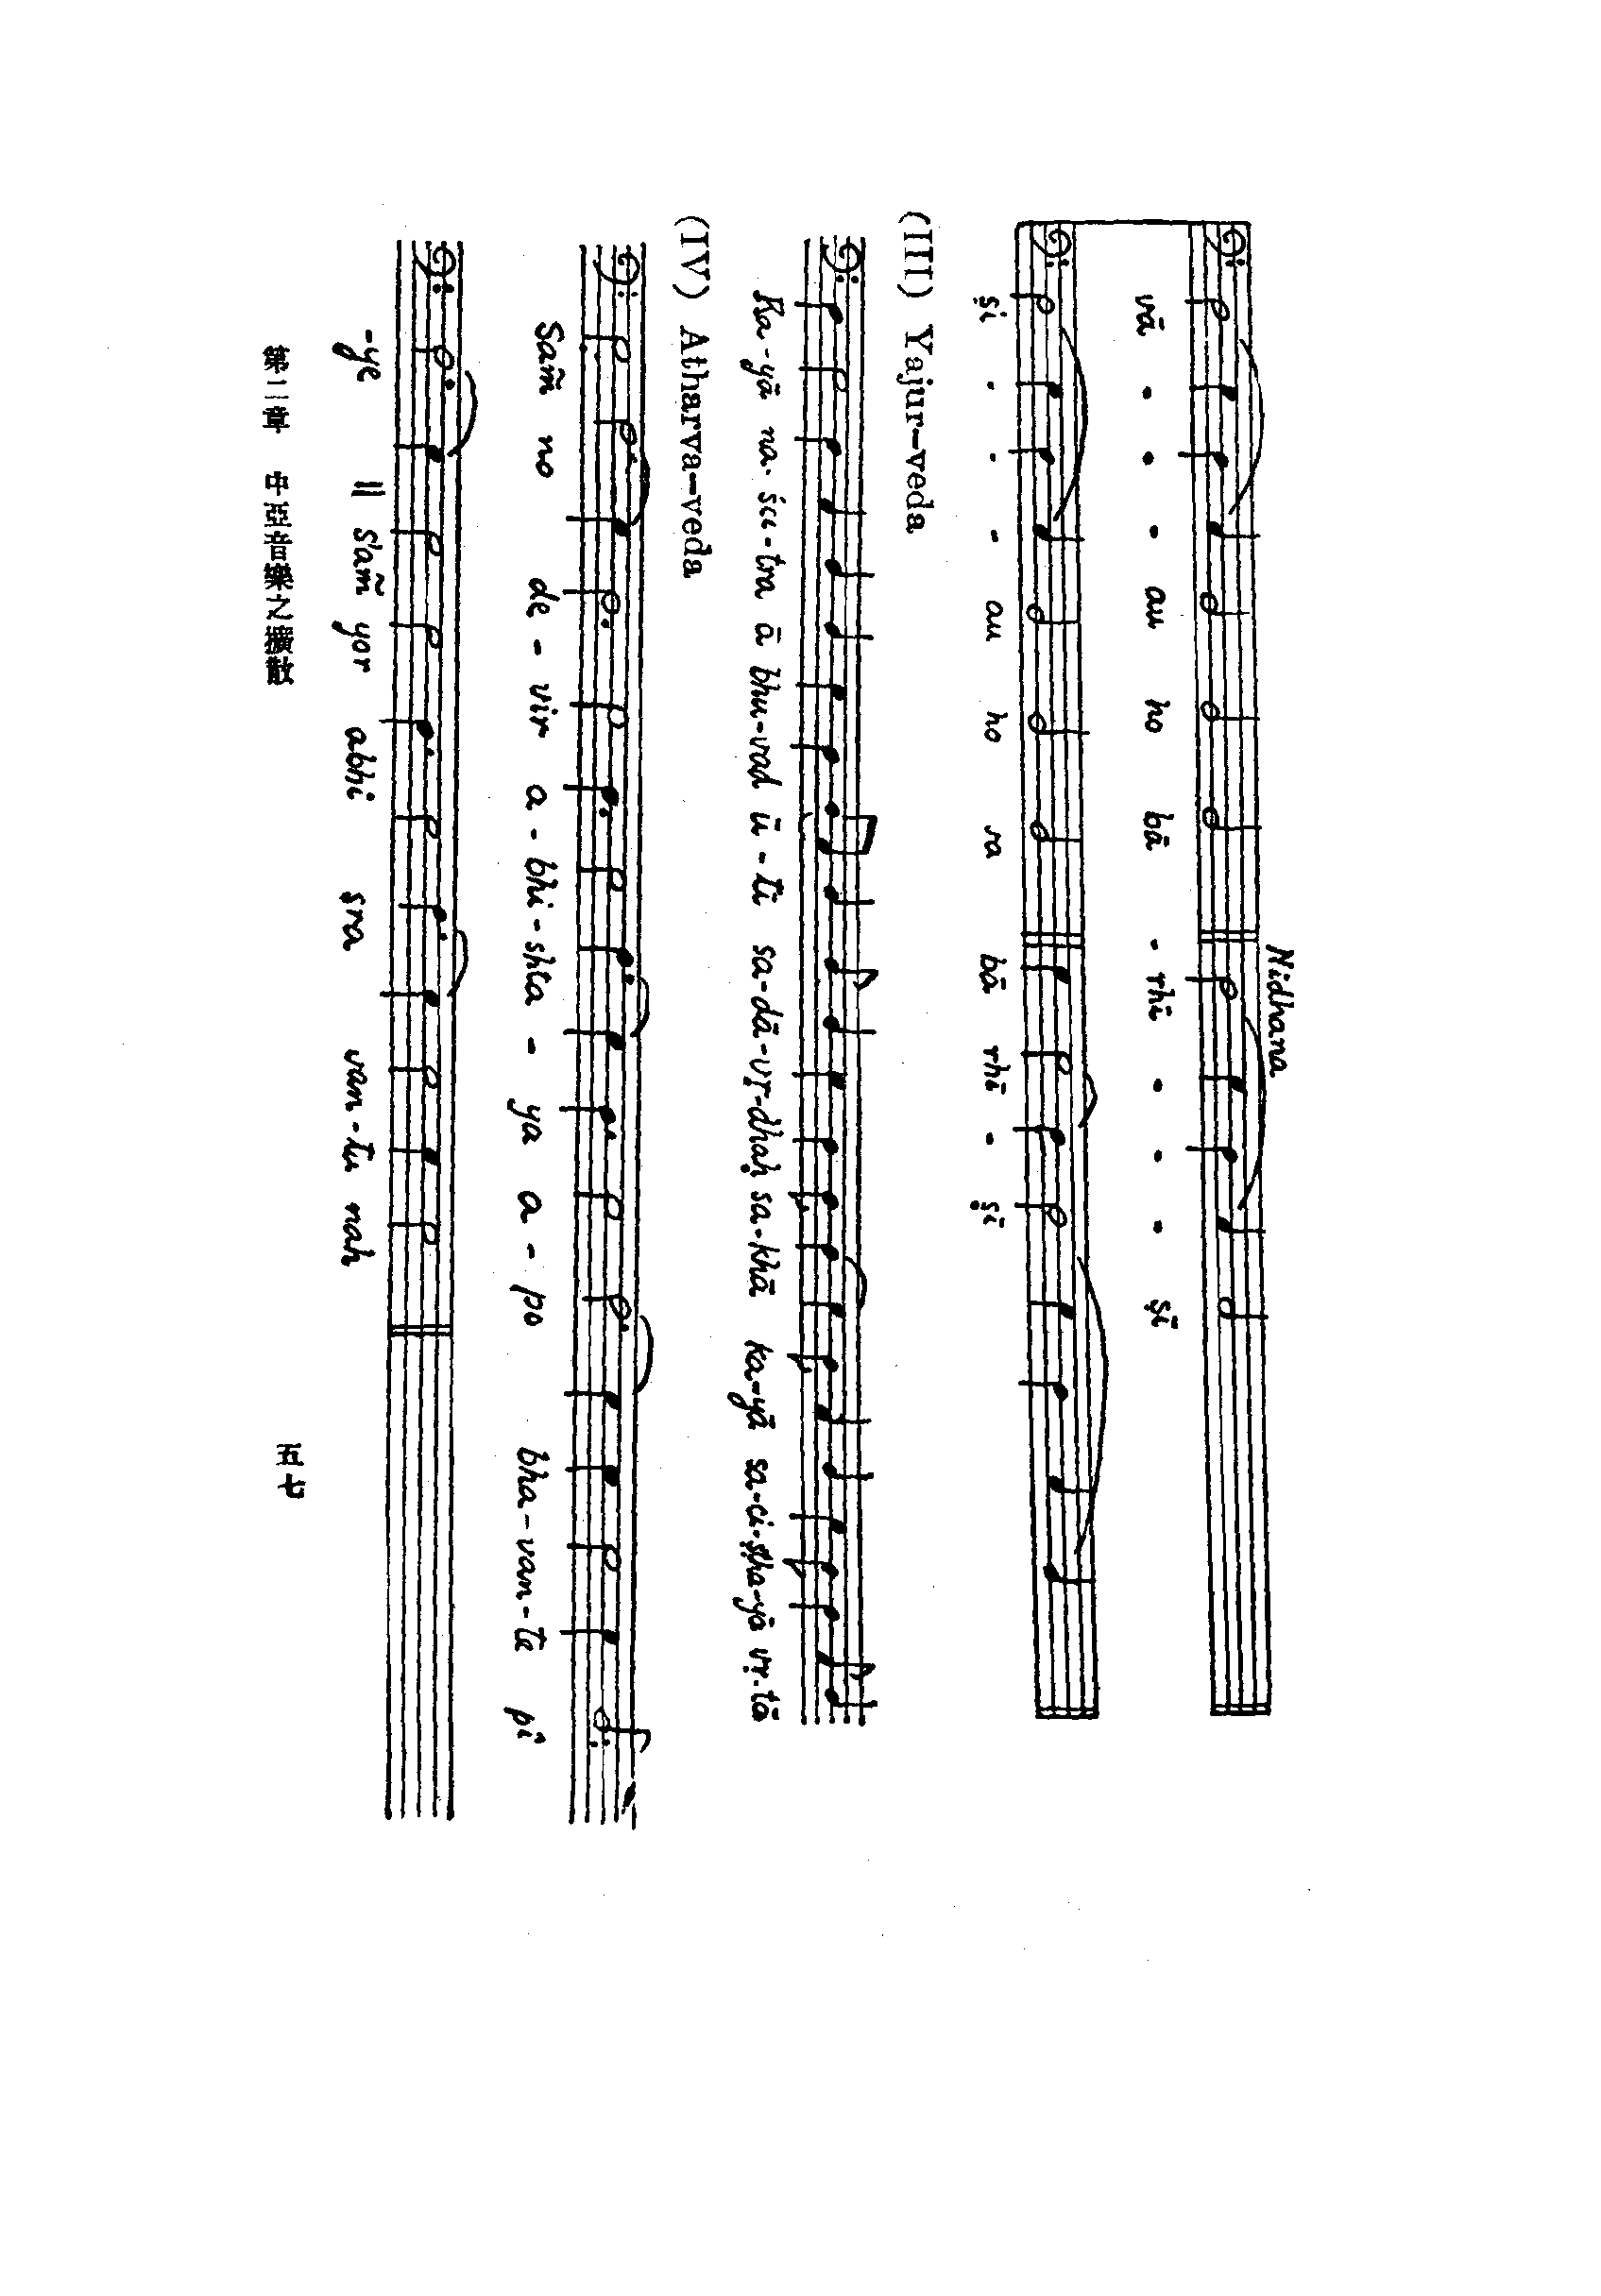 Nidhana
vā - - - au ho bā - rhī - - - ṣī
ṣi - - - au ho ra bā rhī - ṣī
(III) Yajur-veda
Ka-yā na. śu-tra ā bhu-vad ū-ti sa-dā-vṛ-dhaḥ sa-khā ka-yā sa-ci-ṣṭha-yā vṛ-tā
(IV) Atharva-veda
Sam̃ no de-vir a-bhi-shta-ya a-po bha-van-ta pî
-ye || Sam̃ yor abhi ṣra van-tu nah
第二章 中亞音樂之擴散
五七